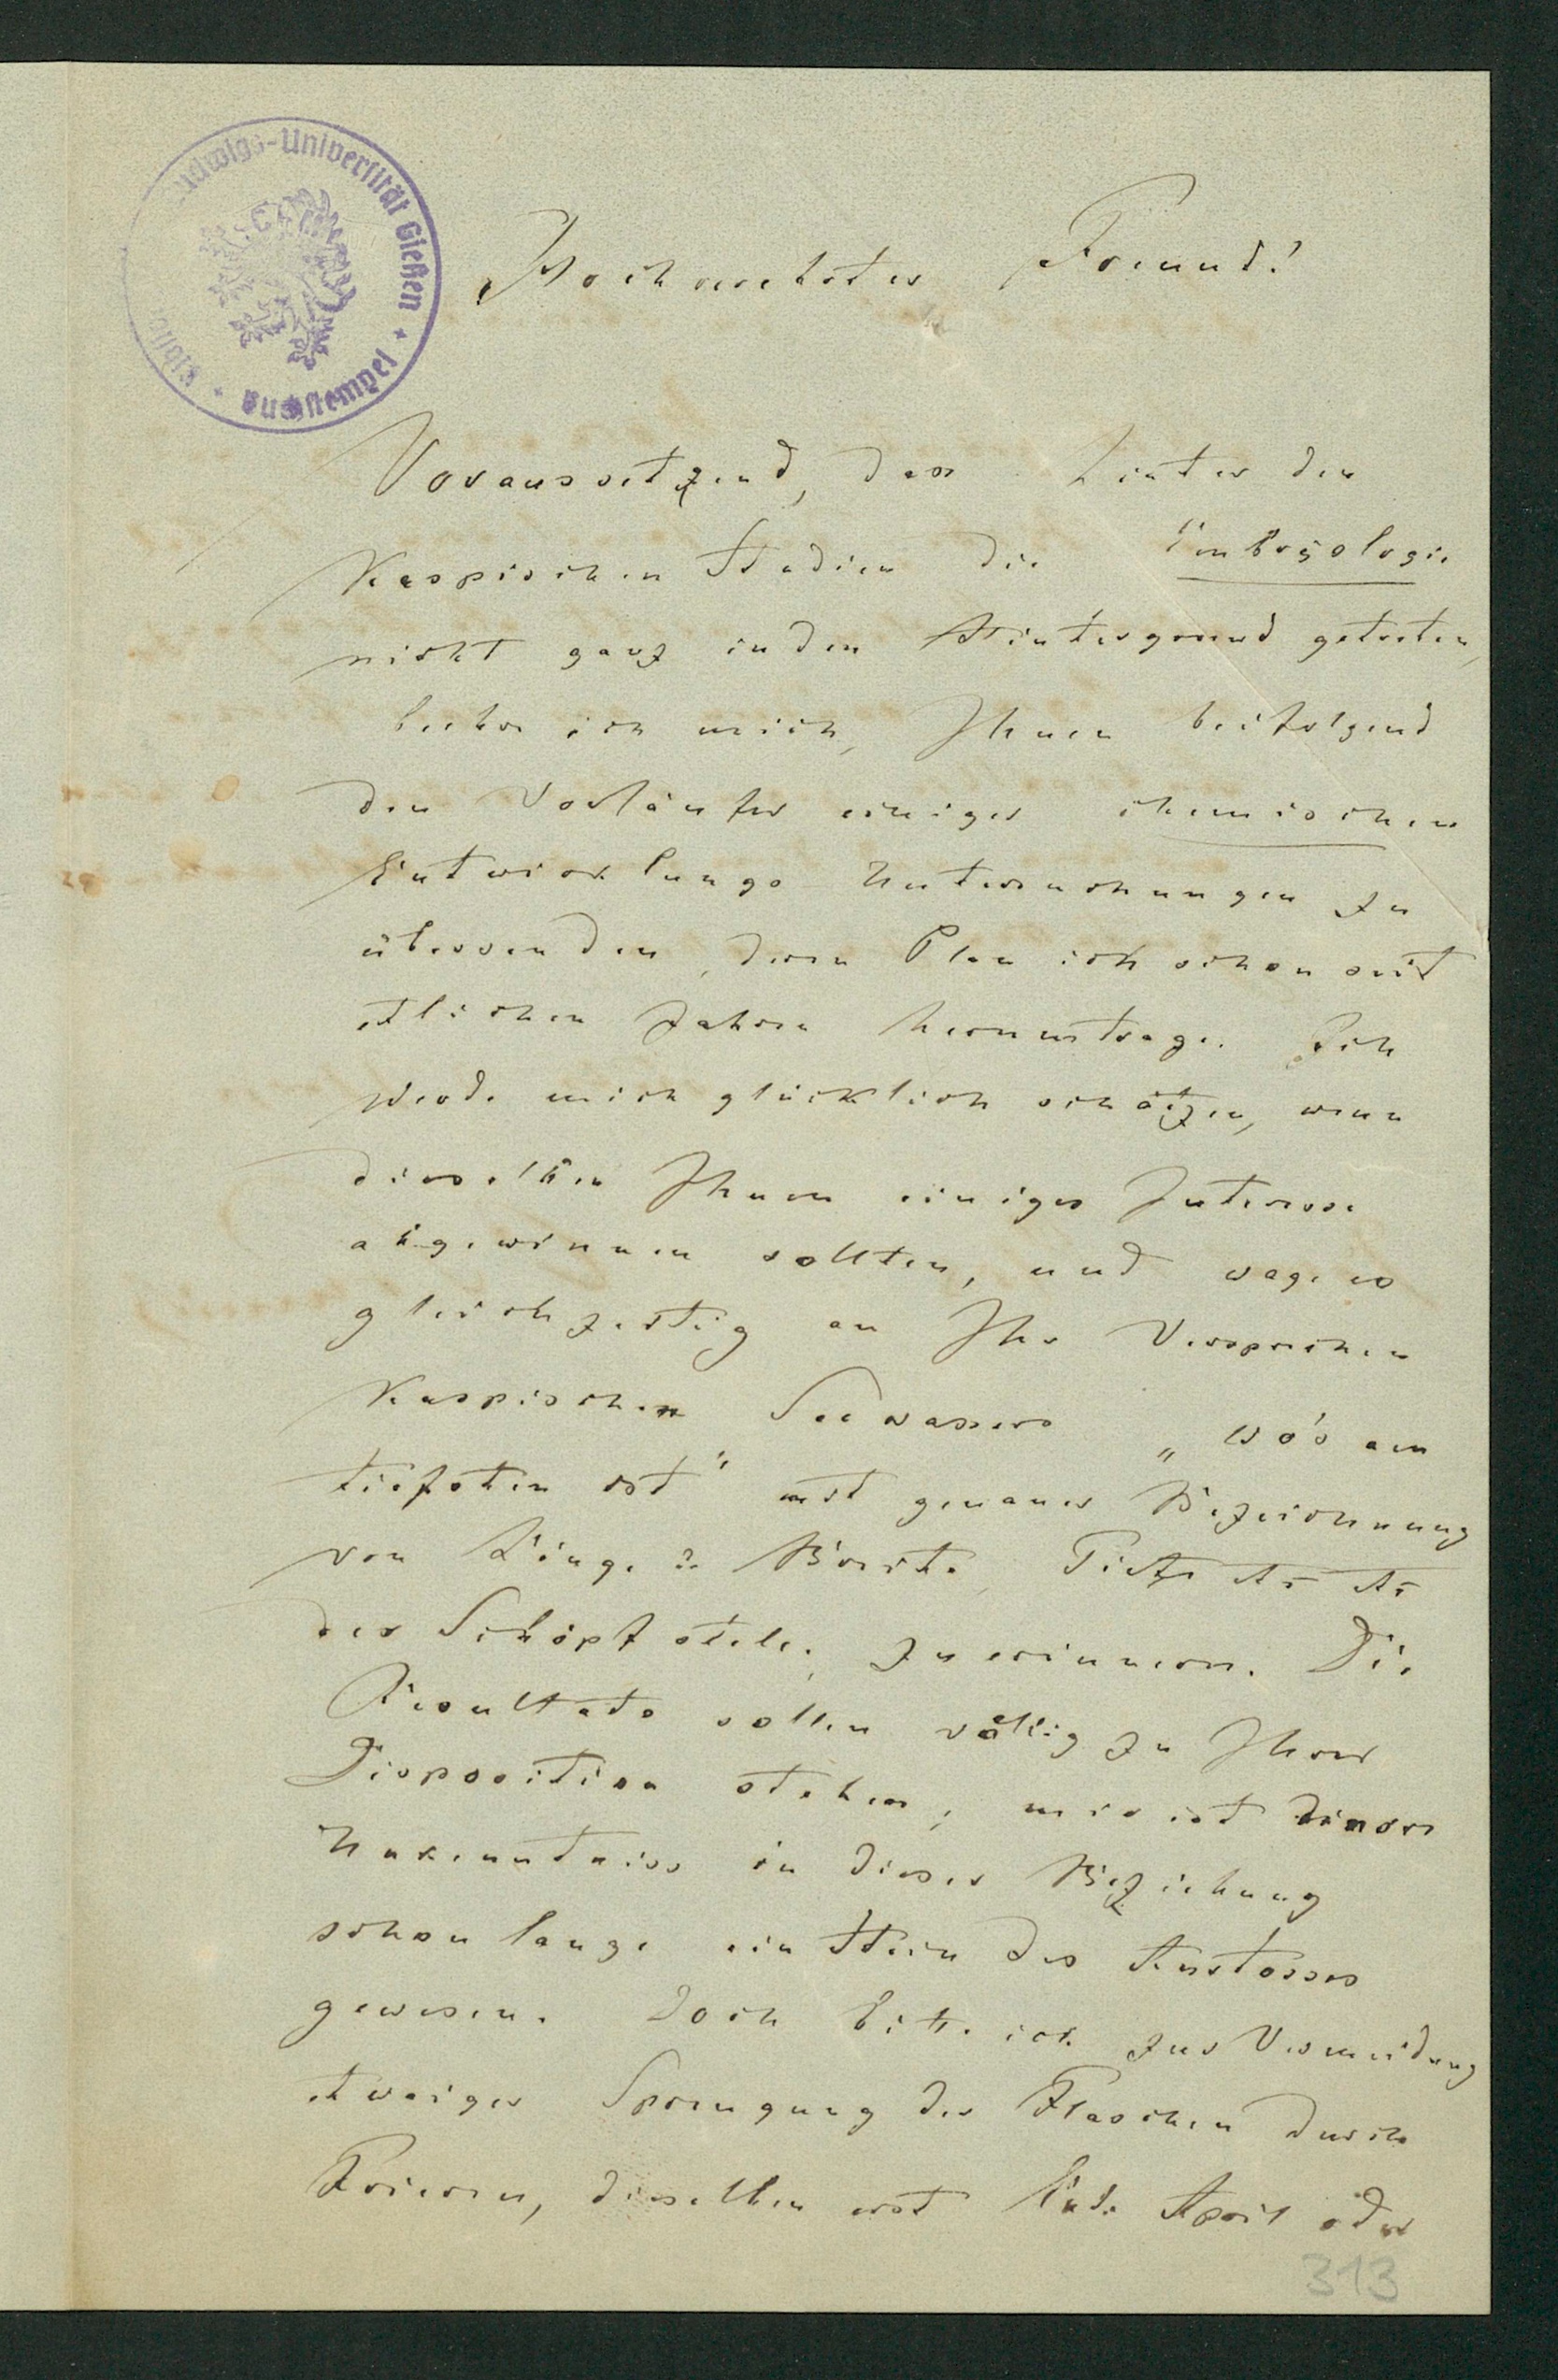 Ludwigs-Universität Gießen
Buchstempel
Hochverehrter Freund!
Voraussetzend, dass hinter den
Kaspischen Studien die Embryologie
nicht ganz in den Hintergrund getreten,
beehre ich mich, Ihnen beifolgend
den Vorläufer einiger chemischen
Entwicklungs Untersuchungen zu
übersenden, deren Plan ich schon seit
etlichen Jahren herumtrage. Ich
werde mich glücklich schätzen, wenn
dieselben Ihnen einiges Interesse
abgewinnen sollten, und wage es
gleichzeitig an Ihr Versprechen
Kaspischen Seewassers „wo's am
tiefsten ist" mit genauer Bezeichnung
von Länge & Breite, Tiefe etc etc
der Schöpfstelle, zu erinnern. Die
Resultate sollen völlig zu Ihrer
Disposition stehen, mir ist
Unkenntniss in dieser Beziehung
schon lange ein Stein des Anstosses
gewesen. Doch bitte ich zur Vermeidung
etwaiger Sprengung der Flaschen durch
Frieren, dieselben erst Ende April oder
313